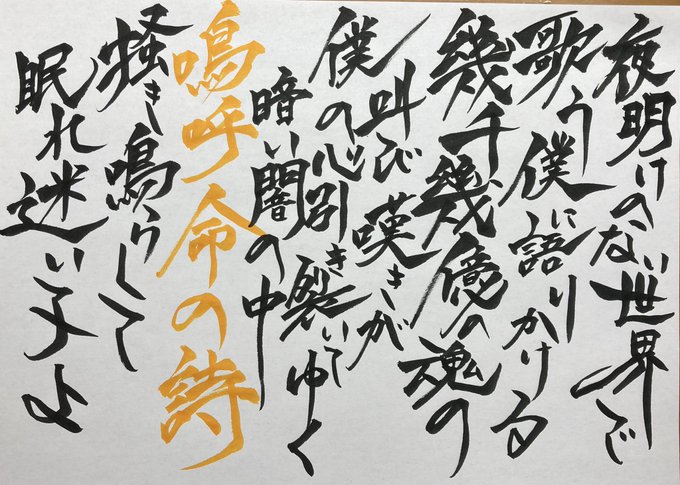 夜明けのない世界で
歌う僕に語りかける
幾千幾億の魂の
叫び嘆きが
僕の心引き裂いてゆく
暗い闇の中
嗚呼命の詩
掻き鳴らして
眠れ迷い子よ